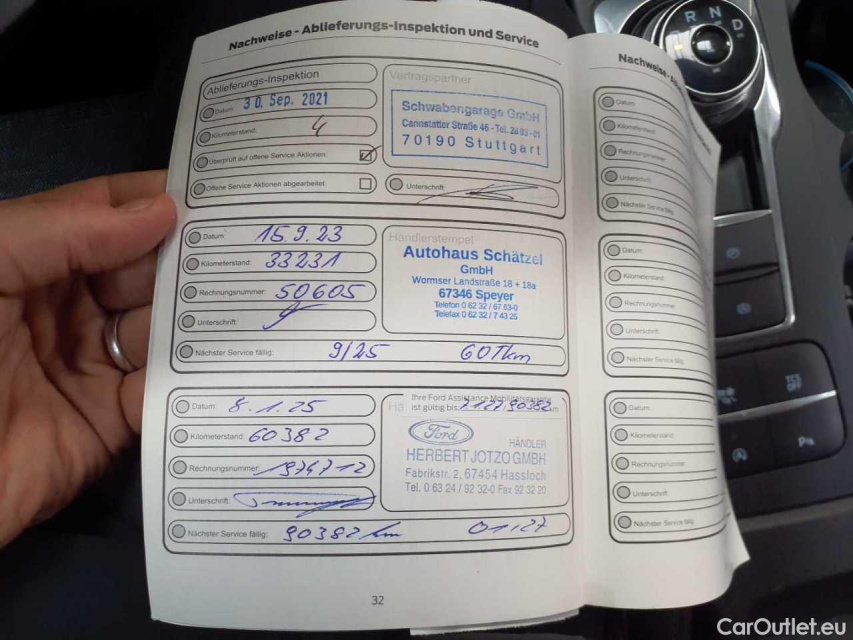 Nachweise - Ablieferungs-Inspektion und Service
Ablieferungs-Inspektion
Datum: 30. Sep. 2021
Kilometerstand: 4
Überprüft auf offene Service Aktionen:
Offene Service Aktionen abgearbeitet:
Vertragspartner
Schwabengarage GmbH
Cannstatter Straße 46 - Tel. 28 03 - 01
70190 Stuttgart
Unterschrift:
Datum: 15.9.23
Kilometerstand: 33231
Rechnungsnummer: 50605
Unterschrift:
Händlerstempel
Autohaus Schätzel
GmbH
Wormser Landstraße 18 + 18a
67346 Speyer
Telefon 0 62 32 / 67 63-0
Telefax 0 62 32 / 7 43 25
Nächster Service fällig: 9/25 60Tkm
Datum: 8.1.25
Kilometerstand: 60382
Rechnungsnummer: 1974712
Unterschrift:
Nächster Service fällig: 90382 km 01.27
Ihre Ford Assistance Mobilitätsgarantie
ist gültig bis: 90382 km
Ford
HÄNDLER
HERBERT JOTZO GMBH
Fabrikstr. 2, 67454 Hassloch
Tel. 0 63 24 / 92 32-0 Fax 92 32 20
32
Datum
Kilometerstand:
Rechnungsnummer:
Unterschrift:
Nächster Service fällig:
Datum:
Kilometerstand:
Rechnungsnummer:
Unterschrift:
Nächster Service fällig:
Datum:
Kilometerstand:
Rechnungsnummer:
Unterschrift:
Nächster Service fällig:
R N D
TCS
OFF
CarOutlet.eu